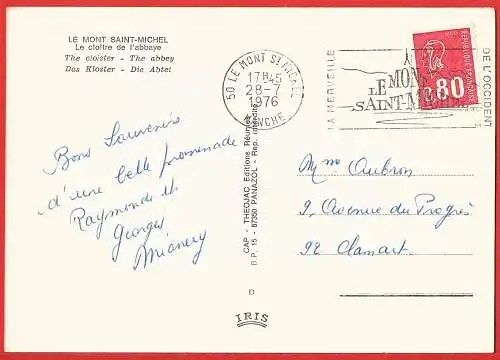 LE MONT SAINT-MICHEL
Le cloître de l'abbaye
The cloister - The abbey
Das Kloster - Die Abtei
Bons Souvenirs
d'une belle promenade
Raymonde et
Georges
CAP - THEOJAC Editions Réunies
B.P. 15 - 87350 PANAZOL - Rep. interdite
D
IRIS
50 LE MONT ST MICHEL
17H45
28-7
1976
MANCHE
LA MERVEILLE
LE MONT
SAINT-MICHEL
DE L'OCCIDENT
0,80
REPUBLIQUE FRANÇAISE
Mme Aubron
9, Avenue du Progrès
92 Clamart